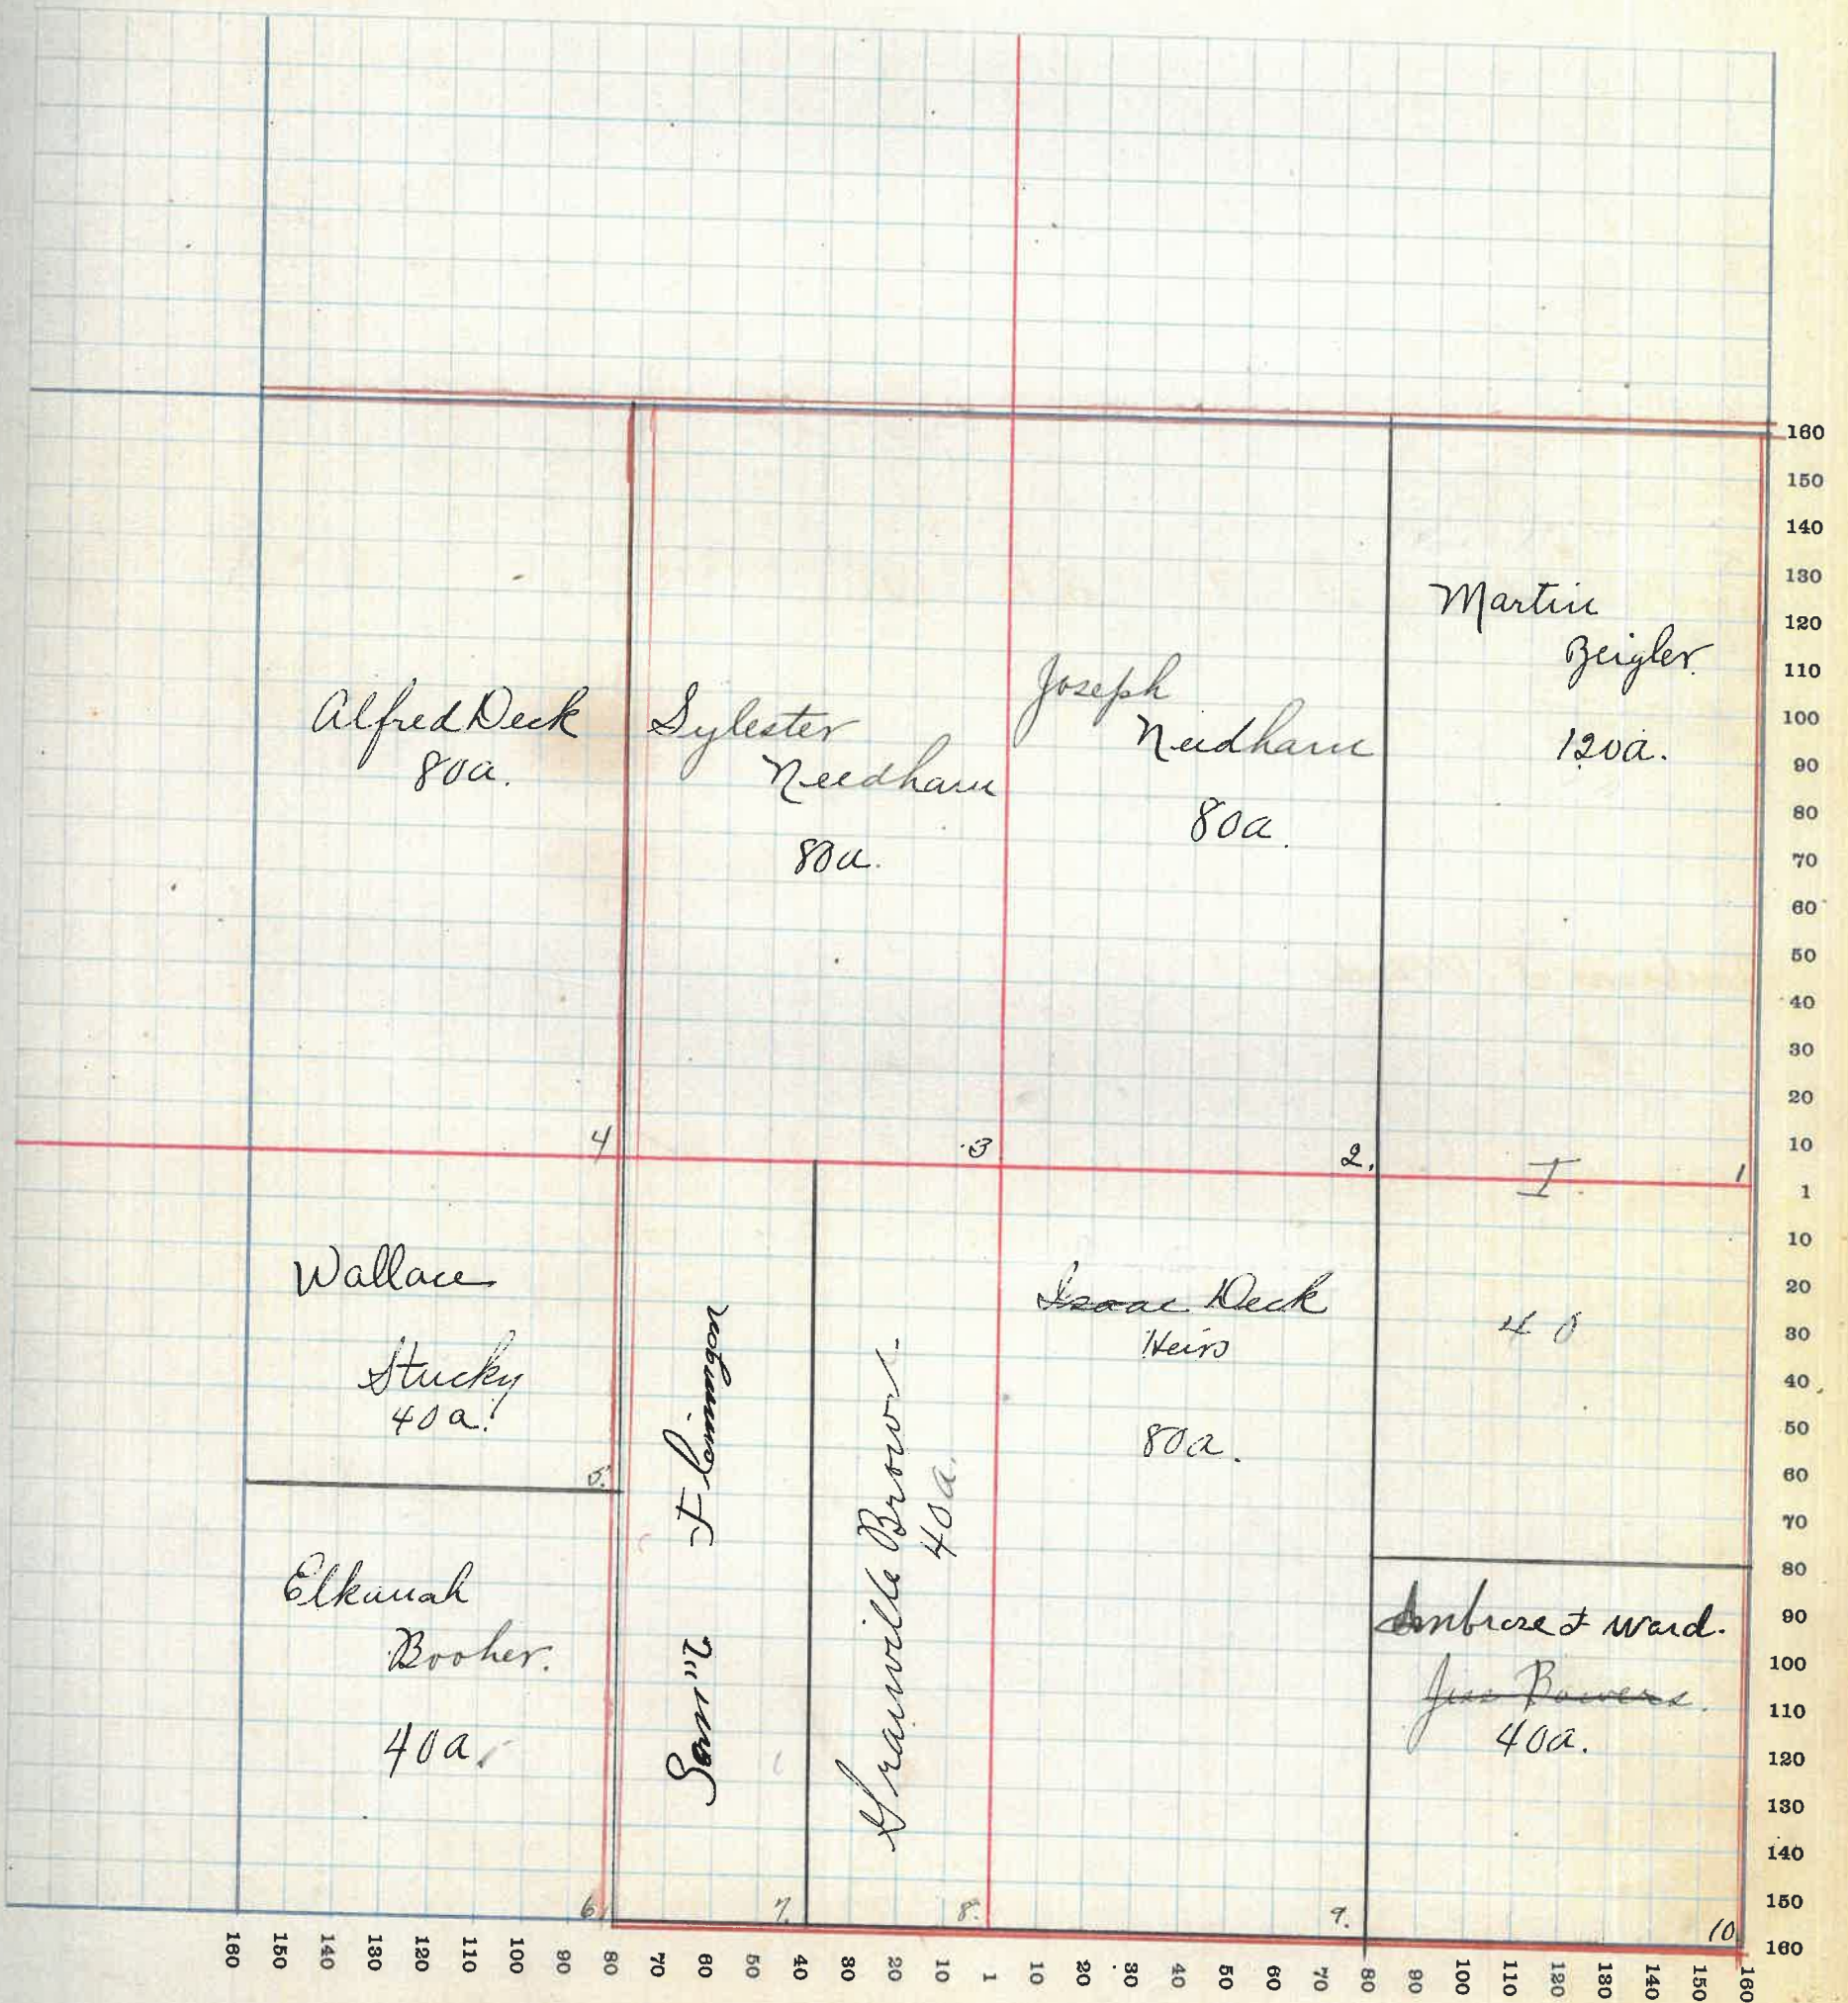 160
150
140
130
120
110
100
90
80
70
60
50
40
30
20
10
1
10
20
30
40
50
60
70
80
90
100
110
120
130
140
150
160
Martin
Zeigler.
120a.
Joseph
Needham
80a.
Sylester
Needham
80a.
Alfred Deck
80a.
4
3
2.
I.
1
Wallace
Stucky
40a.
5.
Elkanah
Booher.
40a.
6
Flannigan
7.
Granville Brown.
40a.
8.
Isaac Deck
Heirs
80a.
9.
40
Ambrose F Ward.
Bowers.
40a.
10
160
150
140
130
120
110
100
90
80
70
60
50
40
30
20
10
1
10
20
30
40
50
60
70
80
90
100
110
120
130
140
150
160